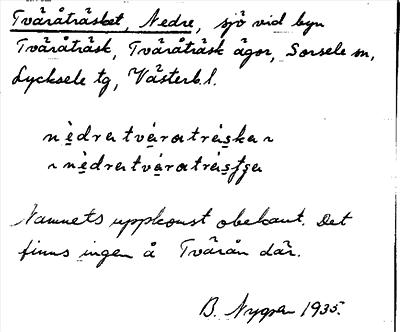 Tväråträsket, Nedre, sjö vid byn
Tväråträsk, Tväråträsk ägor, Sorsele sn,
Lycksele tg, Västerb. l.
nèdratváratrạska ~
~ nèdratváratrạsʃga
Namnets uppkomst obekant. Det
finns ingen å Tvärån där.
B. Nygren 1935.